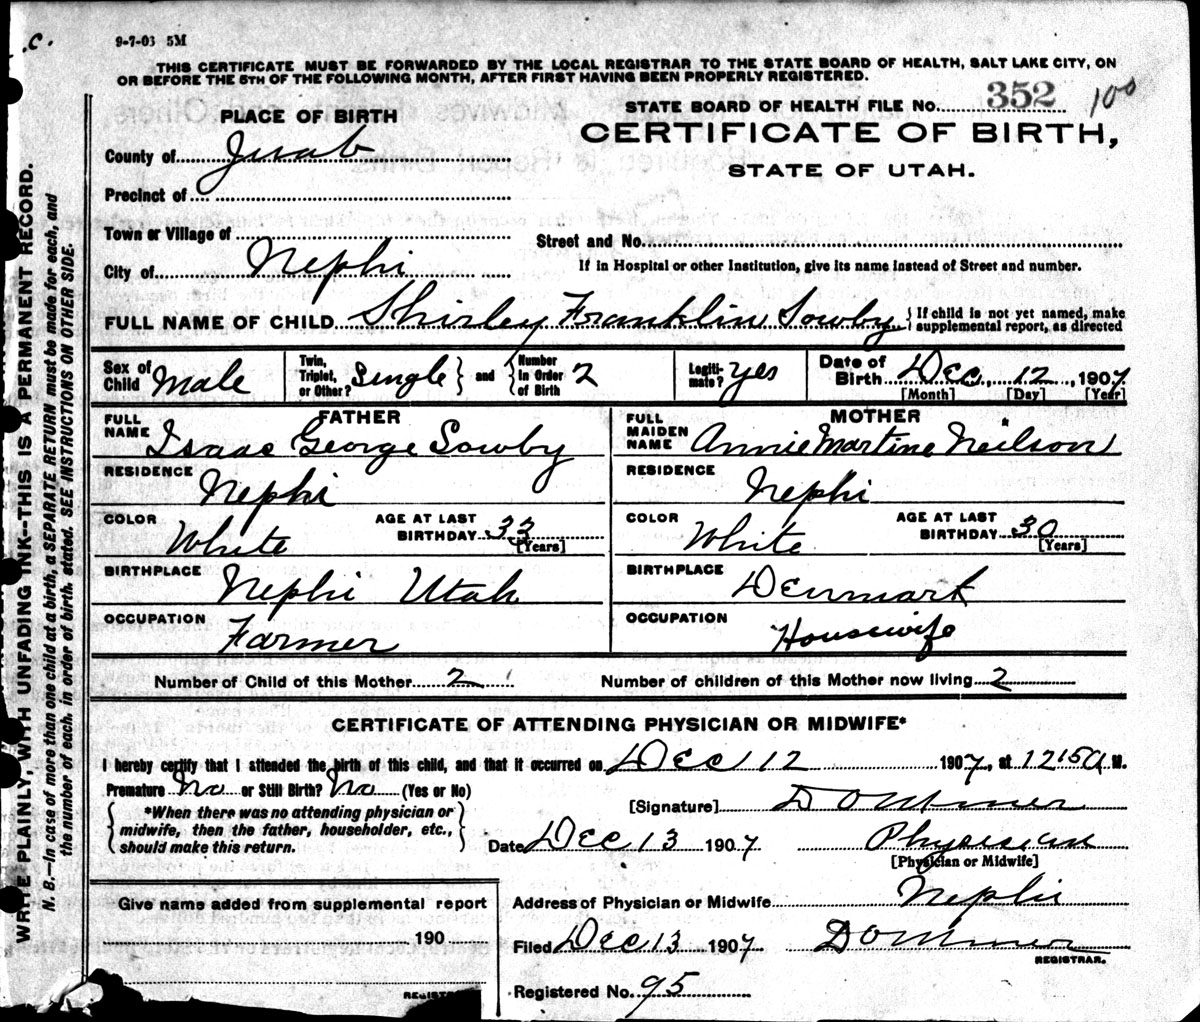 .C.
9-7-03 5M
THIS CERTIFICATE MUST BE FORWARDED BY THE LOCAL REGISTRAR TO THE STATE BOARD OF HEALTH, SALT LAKE CITY, ON
OR BEFORE THE 5TH OF THE FOLLOWING MONTH, AFTER FIRST HAVING BEEN PROPERLY REGISTERED.
STATE BOARD OF HEALTH FILE NO. 352 100
CERTIFICATE OF BIRTH,
STATE OF UTAH.
PLACE OF BIRTH
County of Juab
Precinct of
Town or Village of
Street and No.
City of Nephi
If in Hospital or other Institution, give its name instead of Street and number.
FULL NAME OF CHILD Shirley Franklin Sowby { If child is not yet named, make
supplemental report, as directed
Sex of Child Male Twin, Triplet, or Other? Single } and { Number in Order of Birth 2 Legiti-mate? yes Date of Birth Dec. 12, 1907
[Month] [Day] [Year]
FATHER MOTHER
FULL NAME Isaac George Sowby FULL MAIDEN NAME Annie Martine Neilson
RESIDENCE Nephi RESIDENCE Nephi
COLOR White AGE AT LAST BIRTHDAY 33 [Years] COLOR White AGE AT LAST BIRTHDAY 30 [Years]
BIRTHPLACE Nephi Utah BIRTHPLACE Denmark
OCCUPATION Farmer OCCUPATION Housewife
Number of Child of this Mother 2 Number of children of this Mother now living 2
CERTIFICATE OF ATTENDING PHYSICIAN OR MIDWIFE*
I hereby certify that I attended the birth of this child, and that it occurred on Dec 12 1907, at 12 15 A M.
Premature No or Still Birth? No (Yes or No)
*When there was no attending physician or
midwife, then the father, householder, etc.,
should make this return.
[Signature]
Date Dec 13 1907 Physician
[Physician or Midwife]
Address of Physician or Midwife Nephi
Filed Dec 13 1907
REGISTRAR.
Registered No. 95
Give name added from supplemental report
190
WRITE PLAINLY, WITH UNFADING INK--THIS IS A PERMANENT RECORD.
N. B.—In case of more than one child at a birth, a SEPARATE RETURN must be made for each, and
the number of each, in order of birth, stated. SEE INSTRUCTIONS ON OTHER SIDE.